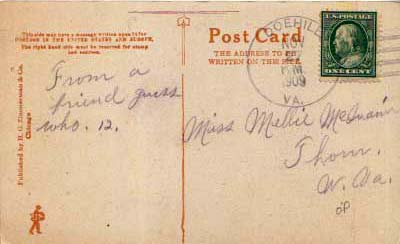 This side may have a message written upon it for
POSTAGE IN THE UNITED STATES AND EUROPE.
The right hand side must be reserved for stamp
and address.
Post Card
THE ADDRESS TO BE
WRITTEN ON THIS SIDE.
DOEHILL
NOV
P.M.
1909
VA.
U.S. POSTAGE
ONE CENT
From a
friend guess
who. 12.
Miss Mellie
Thorn.
W. Va.
Published by H. G. Zimmerman & Co.
Chicago